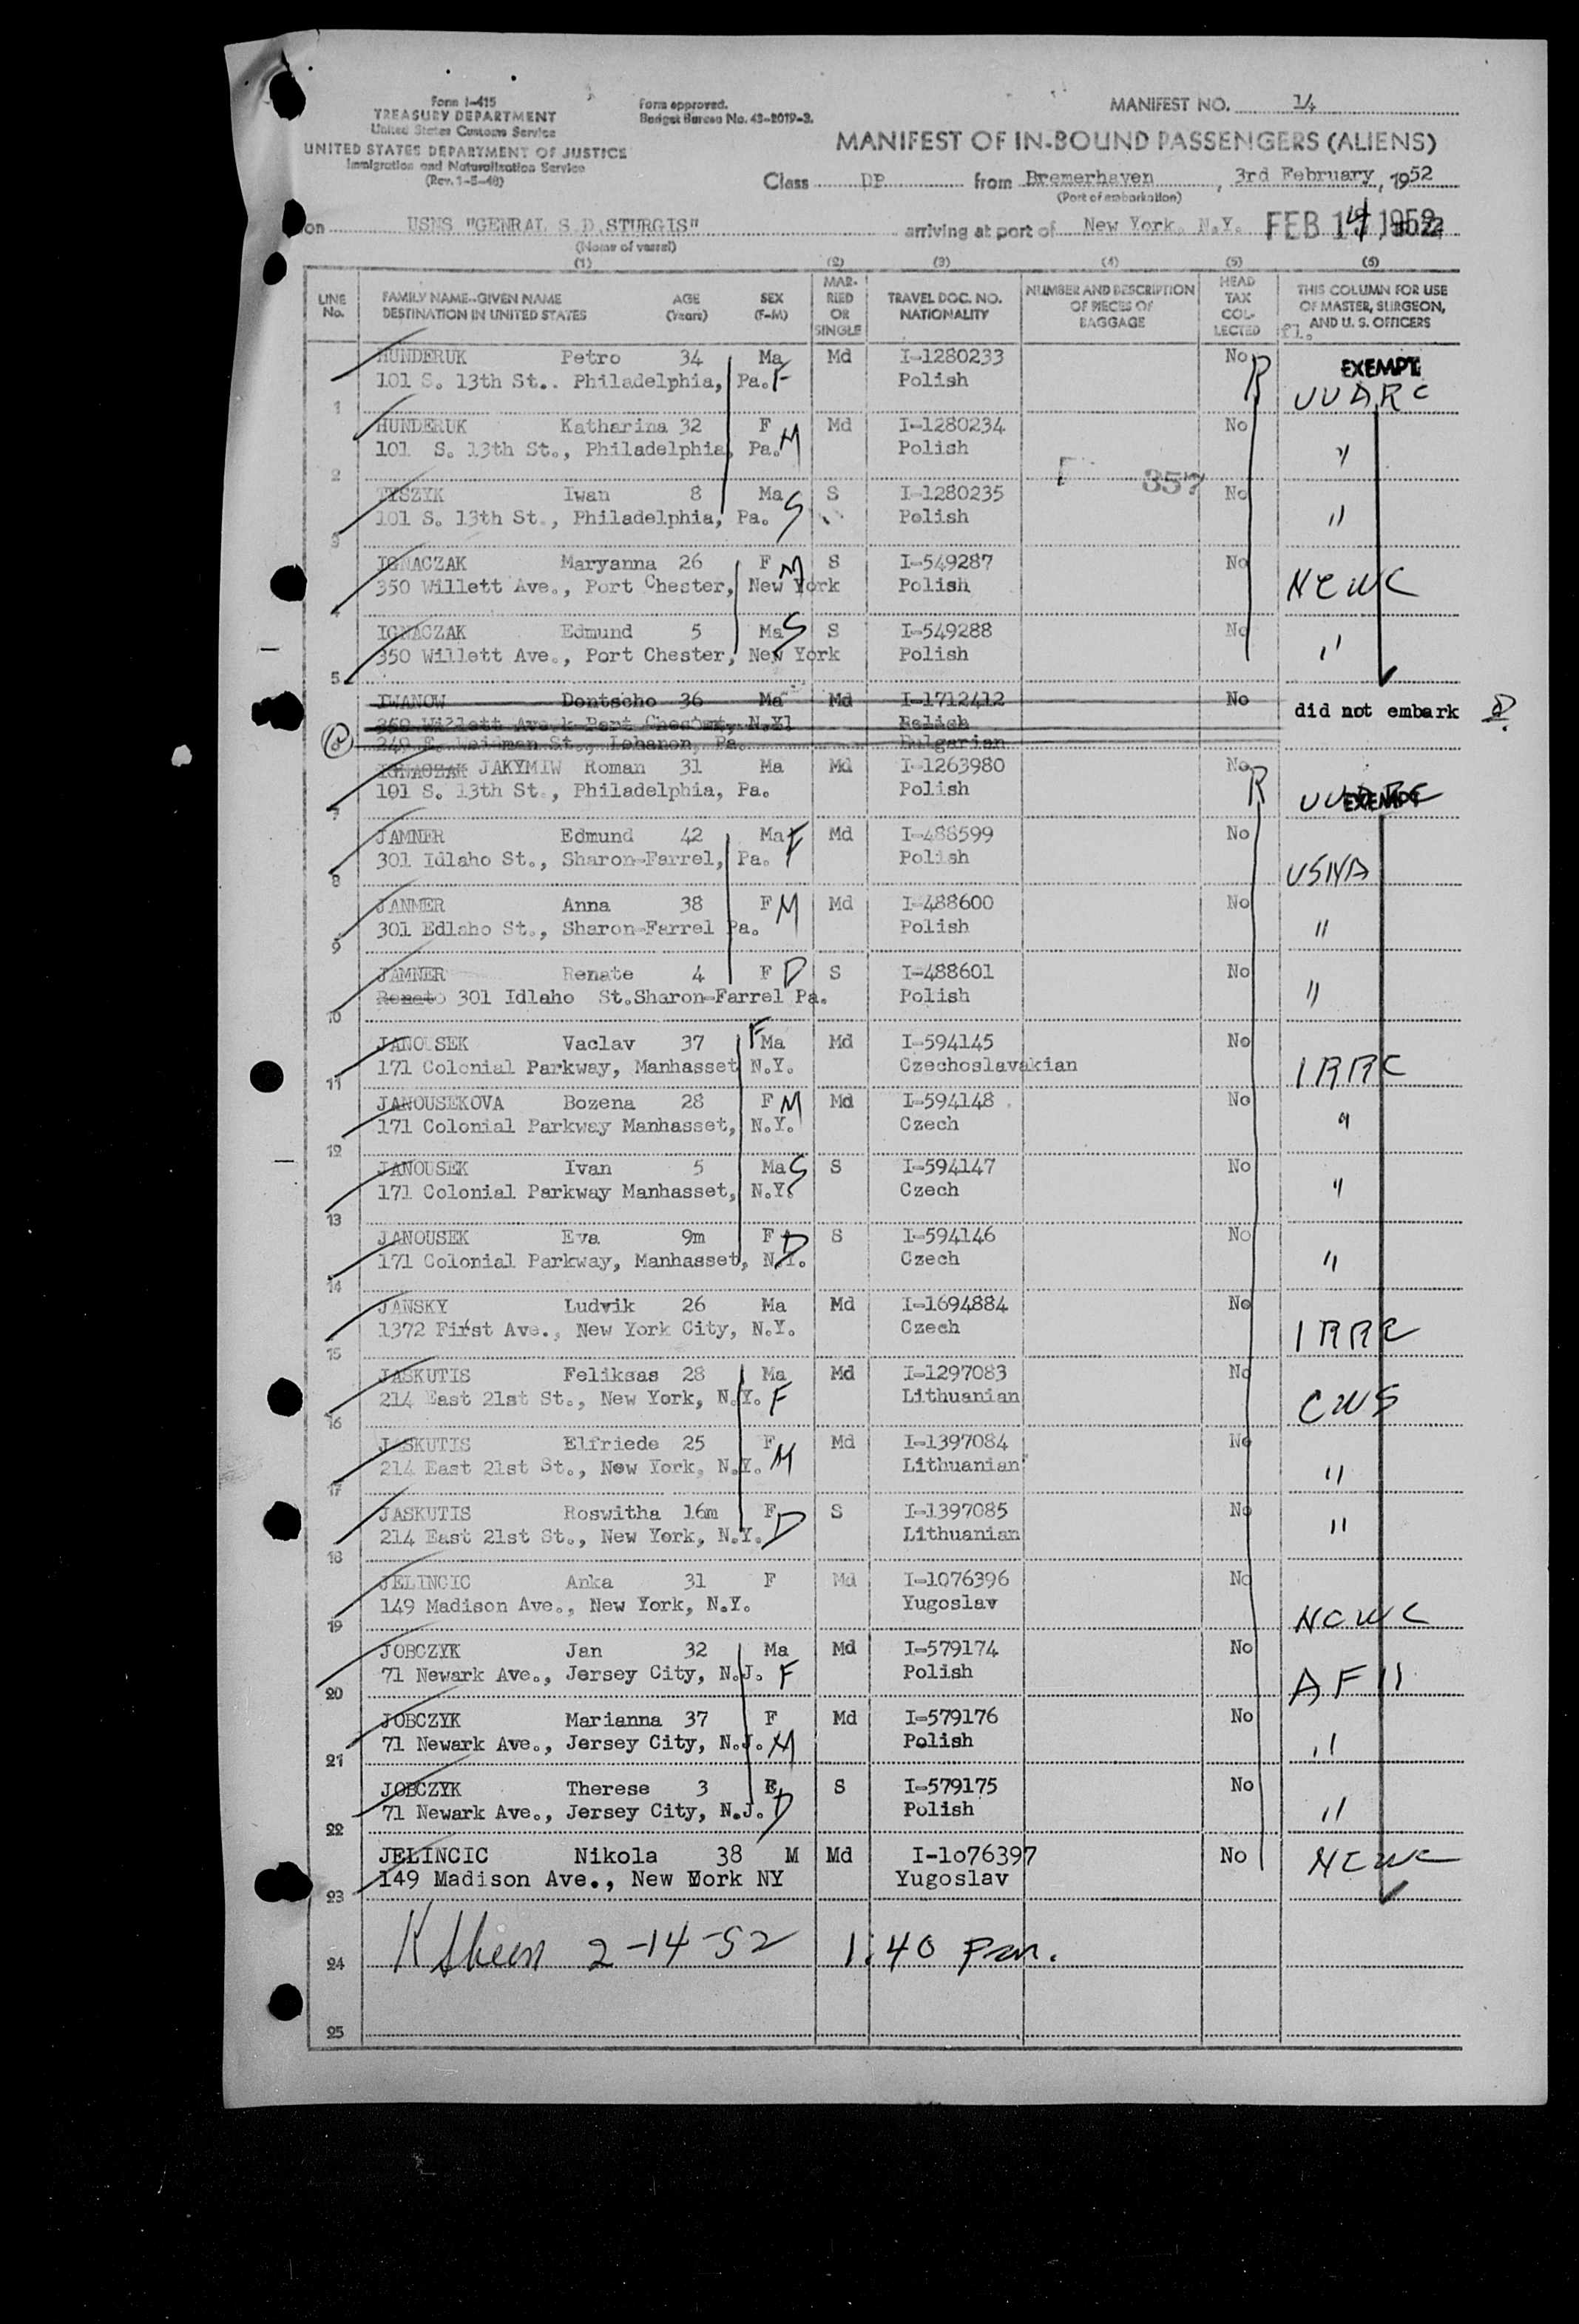 Form I-415
TREASURY DEPARTMENT
United States Customs Service
UNITED STATES DEPARTMENT OF JUSTICE
Immigration and Naturalization Service
(Rev. 1-5-48)
Form approved.
Budget Bureau No. 43-2019-3.
MANIFEST NO. 14
MANIFEST OF IN-BOUND PASSENGERS (ALIENS)
Class DP from Bremerhaven, 3rd February, 1952
(Port of embarkation)
on USNS "GENRAL S.D.STURGIS" arriving at port of New York. N.Y. FEB 14 1952
(Name of vessel)
(1) (2) (3) (4) (5) (6)
LINE No. FAMILY NAME--GIVEN NAME DESTINATION IN UNITED STATES AGE (Years) SEX (F-M) MARRIED OR SINGLE TRAVEL DOC. NO. NATIONALITY NUMBER AND DESCRIPTION OF PIECES OF BAGGAGE HEAD TAX COLLECTED THIS COLUMN FOR USE OF MASTER, SURGEON, AND U. S. OFFICERS
HUNDERUK Petro 34 Ma Md I-1280233 No R EXEMPT
1 101 S. 13th St.. Philadelphia, Pa. F Polish UUARC
HUNDERUK Katharina 32 F Md I-1280234 No
2 101 S. 13th St., Philadelphia, Pa. M Polish "
357
TYSZYK Iwan 8 Ma S S I-1280235 No
3 101 S. 13th St., Philadelphia, Pa. Polish "
IGNACZAK Maryanna 26 F M S I-549287 No
4 350 Willett Ave., Port Chester, New York Polish NCWC
IGNACZAK Edmund 5 Ma S S I-549288 No
5 350 Willett Ave., Port Chester, New York Polish "
IWANOW Dontscho 36 Ma Md I-1712412 No
350 Willett Ave Port Chester, N.Y. Polish did not embark
Lebanon, Pa. Bulgarian
IGNACZAK JAKYMIW Roman 31 Ma Md I-1263980 No R
7 101 S. 13th St., Philadelphia, Pa. Polish UUARC EXEMPT
JAMNER Edmund 42 Ma F Md I-488599 No
8 301 Idlaho St., Sharon-Farrel, Pa. Polish USNA
JANMER Anna 38 F M Md I-488600 No
9 301 Edlaho St., Sharon-Farrel Pa. Polish "
JAMNER Renate 4 F D S I-488601 No
10 Renato 301 Idlaho St.Sharon-Farrel Pa. Polish "
JANOUSEK Vaclav 37 F Ma Md I-594145 No
11 171 Colonial Parkway, Manhasset N.Y. Czechoslavakian IRRC
JANOUSEKOVA Bozena 28 F M Md I-594148 No
12 171 Colonial Parkway Manhasset, N.Y. Czech "
JANOUSEK Ivan 5 Ma S S I-594147 No
13 171 Colonial Parkway Manhasset, N.Y. Czech "
JANOUSEK Eva 9m F D S I-594146 No
14 171 Colonial Parkway, Manhasset, N.Y. Czech "
JANSKY Ludvik 26 Ma Md I-1694884 No
15 1372 First Ave., New York City, N.Y. Czech IRRC
JASKUTIS Feliksas 28 Ma Md I-1297083 No
16 214 East 21st St., New York, N.Y. F Lithuanian CWS
JASKUTIS Elfriede 25 F Md I-1397084 No
17 214 East 21st St., New York, N.Y. M Lithuanian "
JASKUTIS Roswitha 16m F S I-1397085 No
18 214 East 21st St., New York, N.Y. D Lithuanian "
JELINCIC Anka 31 F Md I-1076396 No
19 149 Madison Ave., New York, N.Y. Yugoslav NCWC
JOBCZYK Jan 32 Ma Md I-579174 No
20 71 Newark Ave., Jersey City, N.J. F Polish AFII
JOBCZYK Marianna 37 F Md I-579176 No
21 71 Newark Ave., Jersey City, N.J. M Polish "
JOBCZYK Therese 3 F S I-579175 No
22 71 Newark Ave., Jersey City, N.J. D Polish "
JELINCIC Nikola 38 M Md I-1076397 No NCWC
23 149 Madison Ave., New York NY Yugoslav
24 2-14-52 1:40 pm.
25